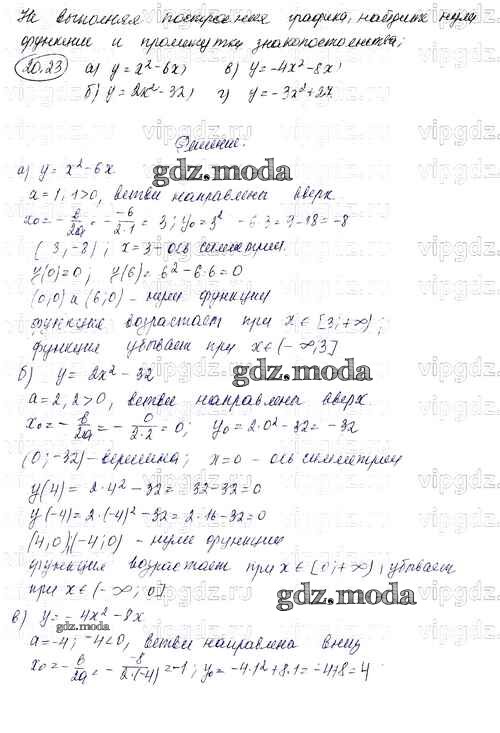 Не выполняя построения графика, найдите нули
функции и промежутки знакопостоянства:
20.23 а) y = x² - 6x; в) y = -4x² - 8x;
б) y = 2x² - 32; г) y = -3x² + 27.
Решение:
а) y = x² - 6x
gdz.moda
a = 1, 1>0, ветви направлены вверх
x₀ = - в/2a = - -6/2·1 = 3; y₀ = 3² - 6·3 = 9 - 18 = -8
(3, -8); x = 3 - ось симметрии.
y(0) = 0; y(6) = 6² - 6·6 = 0
(0;0) и (6;0) - нули функции
функция возрастает при x ∈ [3; +∞);
функция убывает при x ∈ (-∞; 3]
б) y = 2x² - 32
gdz.moda
a = 2, 2>0, ветви направлены вверх.
x₀ = - в/2a = - 0/2·2 = 0; y₀ = 2·0² - 32 = -32
(0; -32) - вершина; x = 0 - ось симметрии
y(4) = 2·4² - 32 = 32 - 32 = 0
y(-4) = 2·(-4)² - 32 = 2·16 - 32 = 0
(4,0)(-4;0) - нули функции
функция возрастает при x ∈ [0; +∞), убывает
при x ∈ (-∞; 0]
gdz.moda
в) y = -4x² - 8x
gdz.moda
a = -4; -4<0, ветви направлена вниз
x₀ = - в/2a = - -8/2·(-4) = -1; y₀ = -4·1² + 8·1 = -4+8 = 4